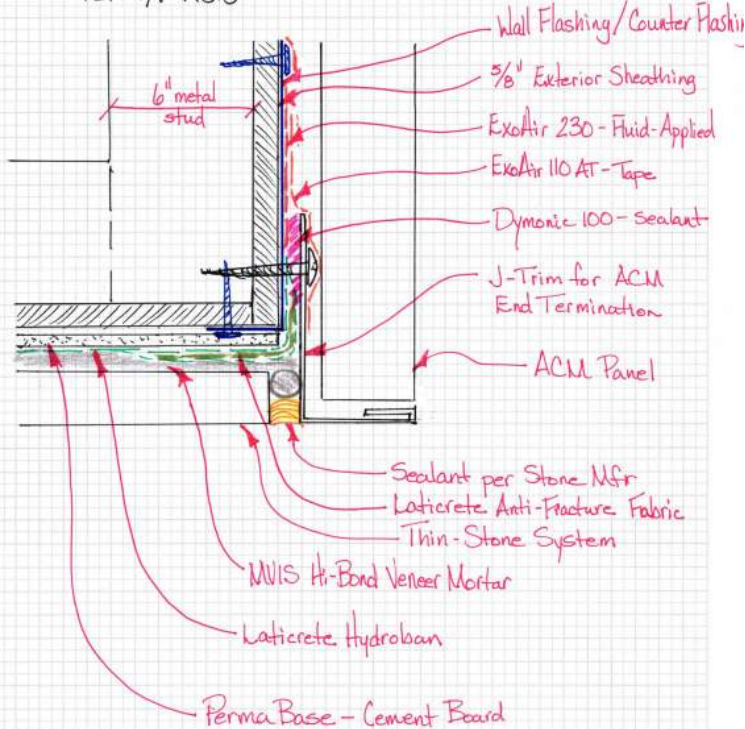 Wall Flashing/Counter Flashin
5/8" Exterior Sheathing
6" metal
stud
ExoAir 230-Fluid-Applied
ExoAir 110 AT-Tape
Dymonic 100-Sealant
J-Trim for ACM
End Termination
ACM Panel
Sealant per Stone Mfr
Laticrete Anti-Fracture Fabric
Thin-Stone System
MVIS Hi-Bond Veneer Mortar
Laticrete Hydroban
PermaBase - Cement Board